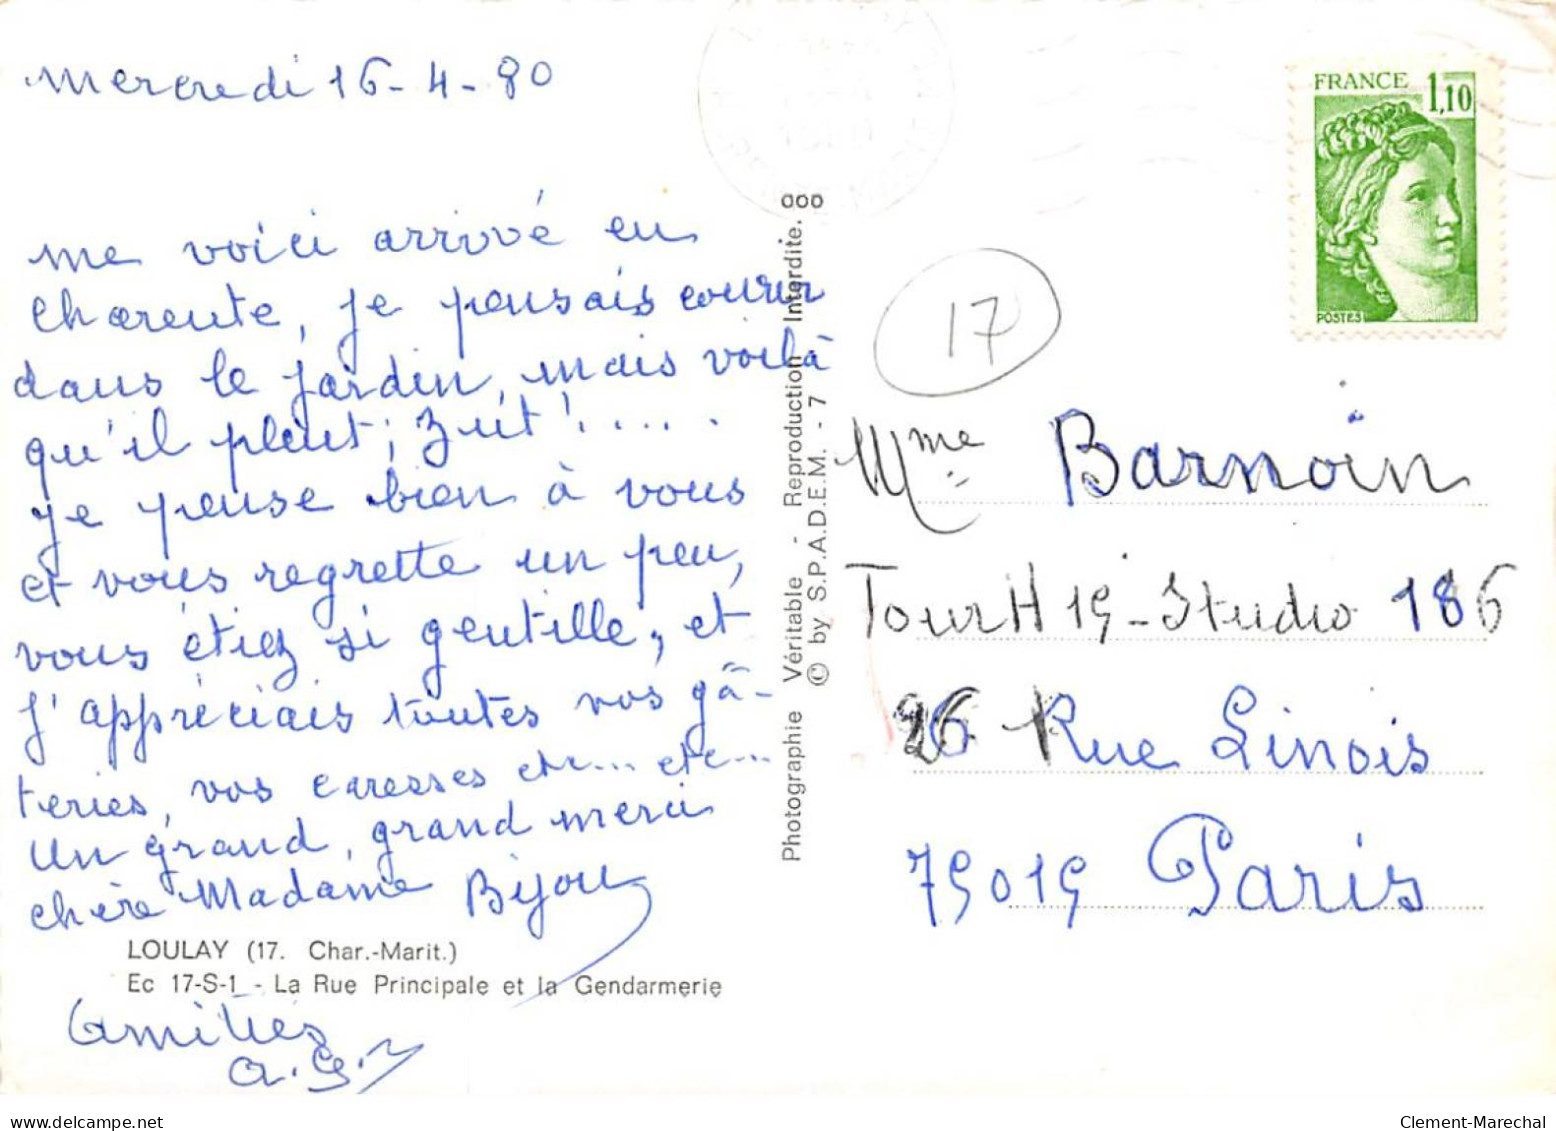 mercredi 16-4-80
me voici arrivé en
Charente, je pensais courir
dans le jardin, mais voilà
qu'il pleut; Zut!....
je pense bien à vous
et vous regrette un peu,
vous étiez si gentille, et
j'appréciais toutes vos gâ-
teries, vos caresses etc... etc...
Un grand, grand merci
chère Madame Bijou
LOULAY (17. Char.-Marit.)
Ec 17-S-1 - La Rue Principale et la Gendarmerie
Amitiés
Photographie Véritable - Reproduction Interdite.
© by S.P.A.D.E.M. - 7
FRANCE 1,10
POSTES
17
Mme Barnoin
Tour H 15-Studio 186
26 Rue Linois
75015 Paris
Clement-Marechal